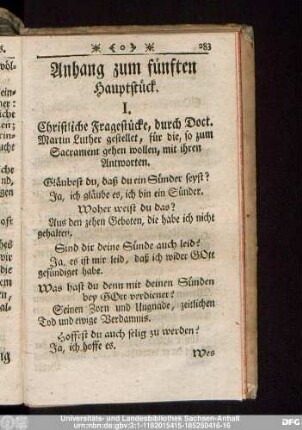 ❋ ( o ) ❋ 283
Anhang zum fünften
Hauptstück.
I.
Christliche Fragestücke, durch Doct.
Martin Luther gestellet, für die, so zum
Sacrament gehen wollen, mit ihren
Antworten.
Gläubest du, daß du ein Sünder seyst?
Ja, ich gläube es, ich bin ein Sünder.
Woher weist du das?
Aus den zehen Geboten, die habe ich nicht
gehalten.
Sind dir deine Sünde auch leid?
Ja, es ist mir leid, daß ich wider GOtt
gesündiget habe.
Was hast du denn mit deinen Sünden
bey GOtt verdienet?
Seinen Zorn und Ungnade, zeitlichen
Tod und ewige Verdamnis.
Hoffest du auch selig zu werden?
Ja, ich hoffe es.
Wes
Universitäts- und Landesbibliothek Sachsen-Anhalt
urn:nbn:de:gbv:3:1-1192015415-185250416-16